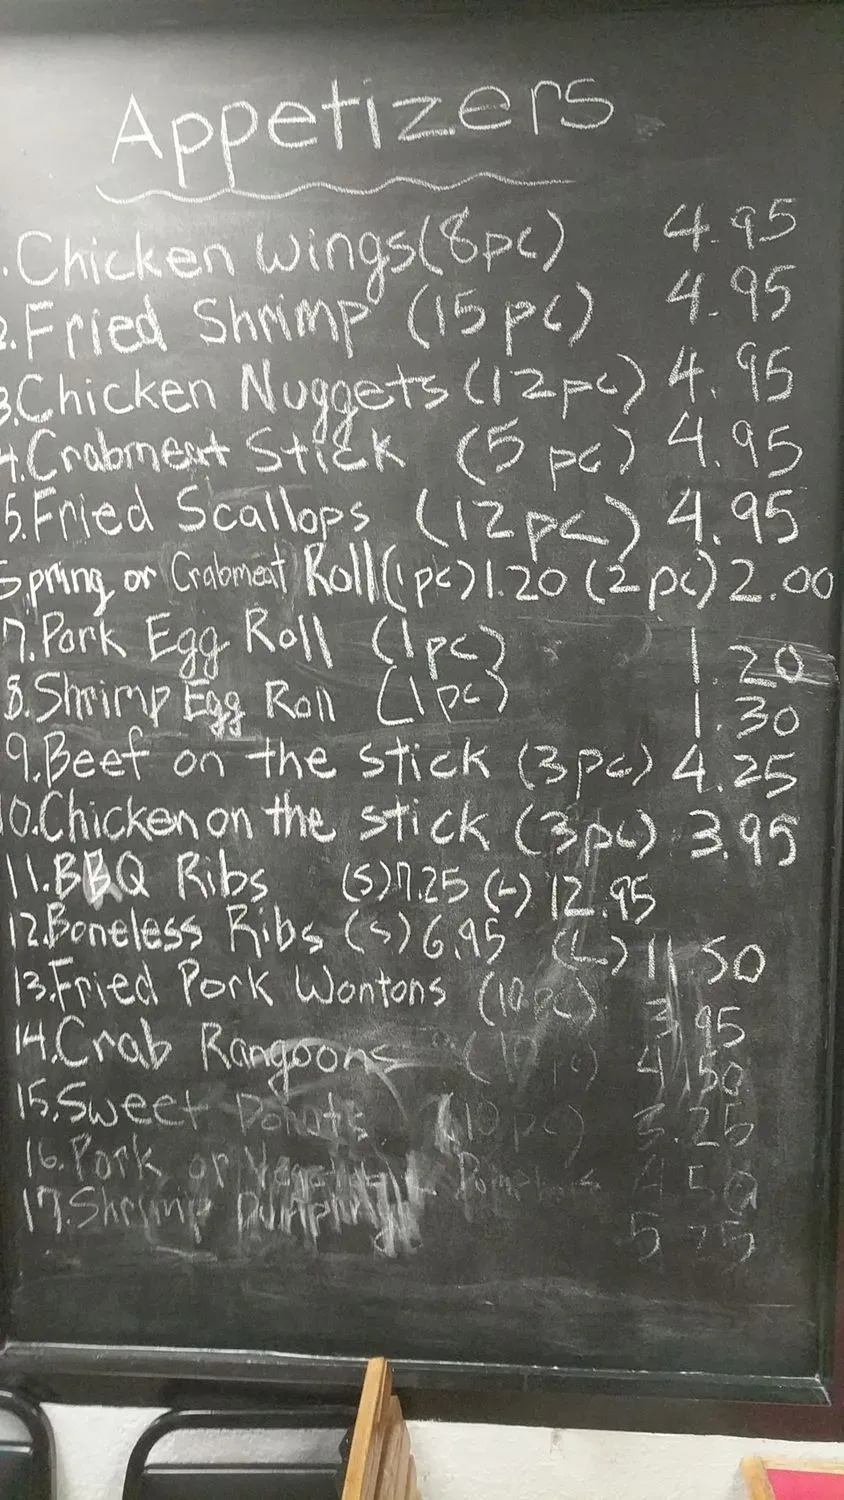 Appetizers
.Chicken Wings(8pc) 4.95
2.Fried Shrimp (15pc) 4.95
3.Chicken Nuggets (12pc) 4.95
4.Crabmeat Stick (5 pc) 4.95
5.Fried Scallops (12pc) 4.95
Spring or Crabmeat Roll(1pc)1.20 (2pc)2.00
7.Pork Egg Roll (1pc) 1.20
8.Shrimp Egg Roll (1pc) 1.30
9.Beef on the stick (3pc) 4.25
10.Chicken on the stick (3pc) 3.95
11.BBQ Ribs (S)7.25 (L) 12.95
12.Boneless Ribs (S)6.95 (L) 11.50
13.Fried Pork Wontons (10pc) 3.95
14.Crab Rangoons (10pc) 4.50
15.Sweet Donuts (10pc) 3.25
16.Pork or 4.50
17.Shrimp Dumplings 5.75